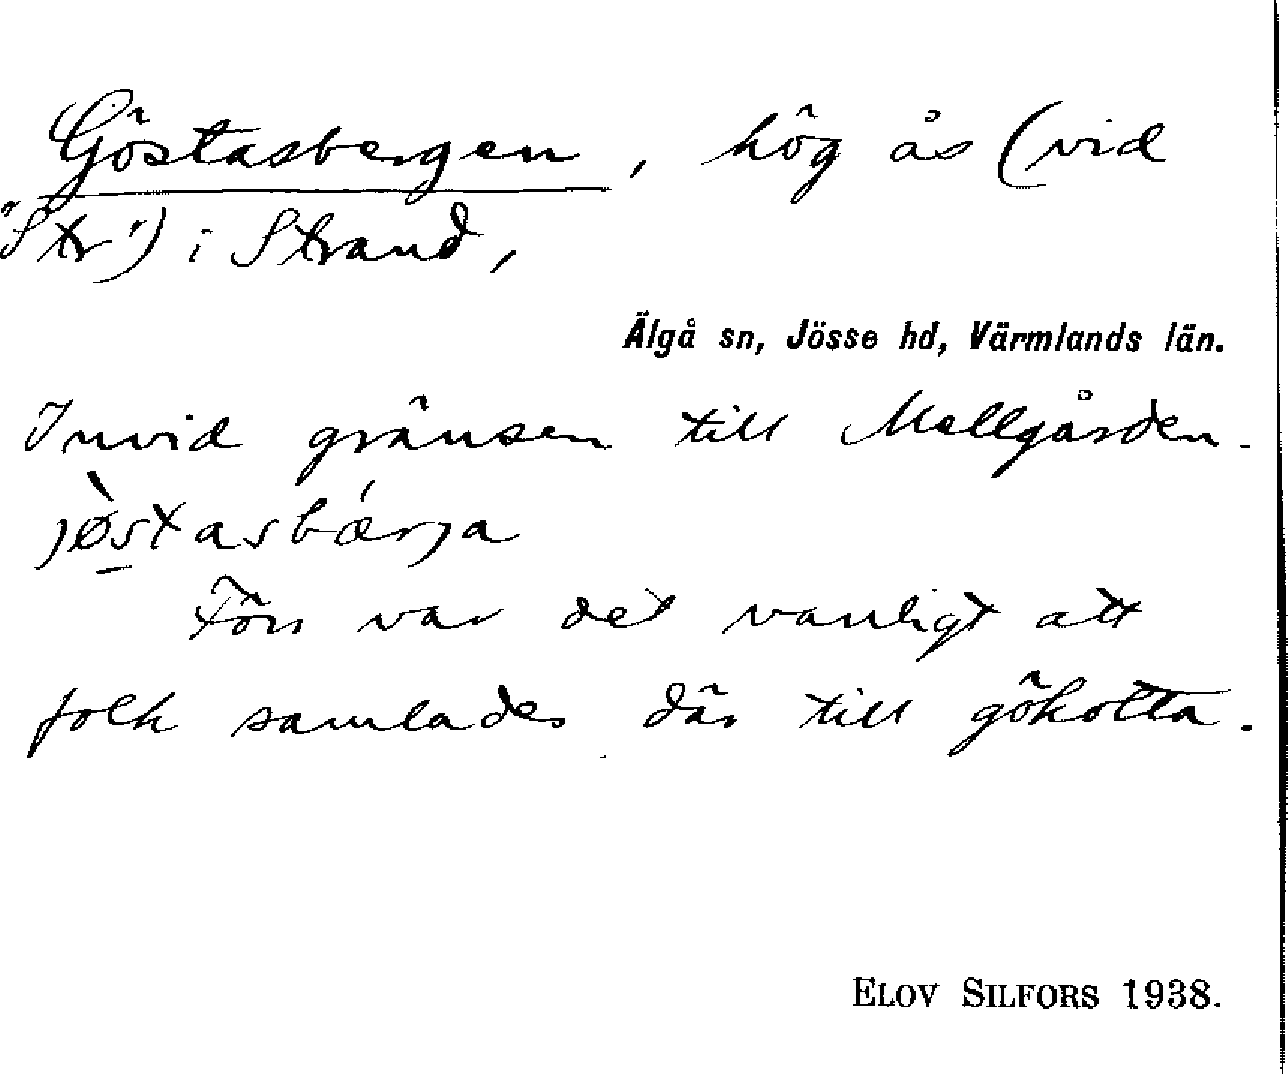 Göstasbergen, hög ås (vid
"Str") i Strand,
Älgå sn, Jösse hd, Värmlands län.
Invid gränsen till Mellgården.
jø̀s̲tasbǽrja
Förr var det vanligt att
folk samlades där till gökotta.
ELOV SILFORS 1938.